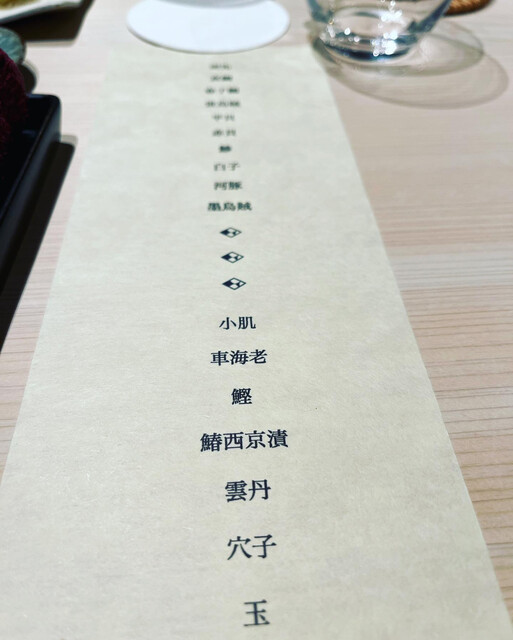 平貝
赤貝
白子
河豚
墨烏賊
小肌
車海老
鰹
鰆西京漬
雲丹
穴子
玉